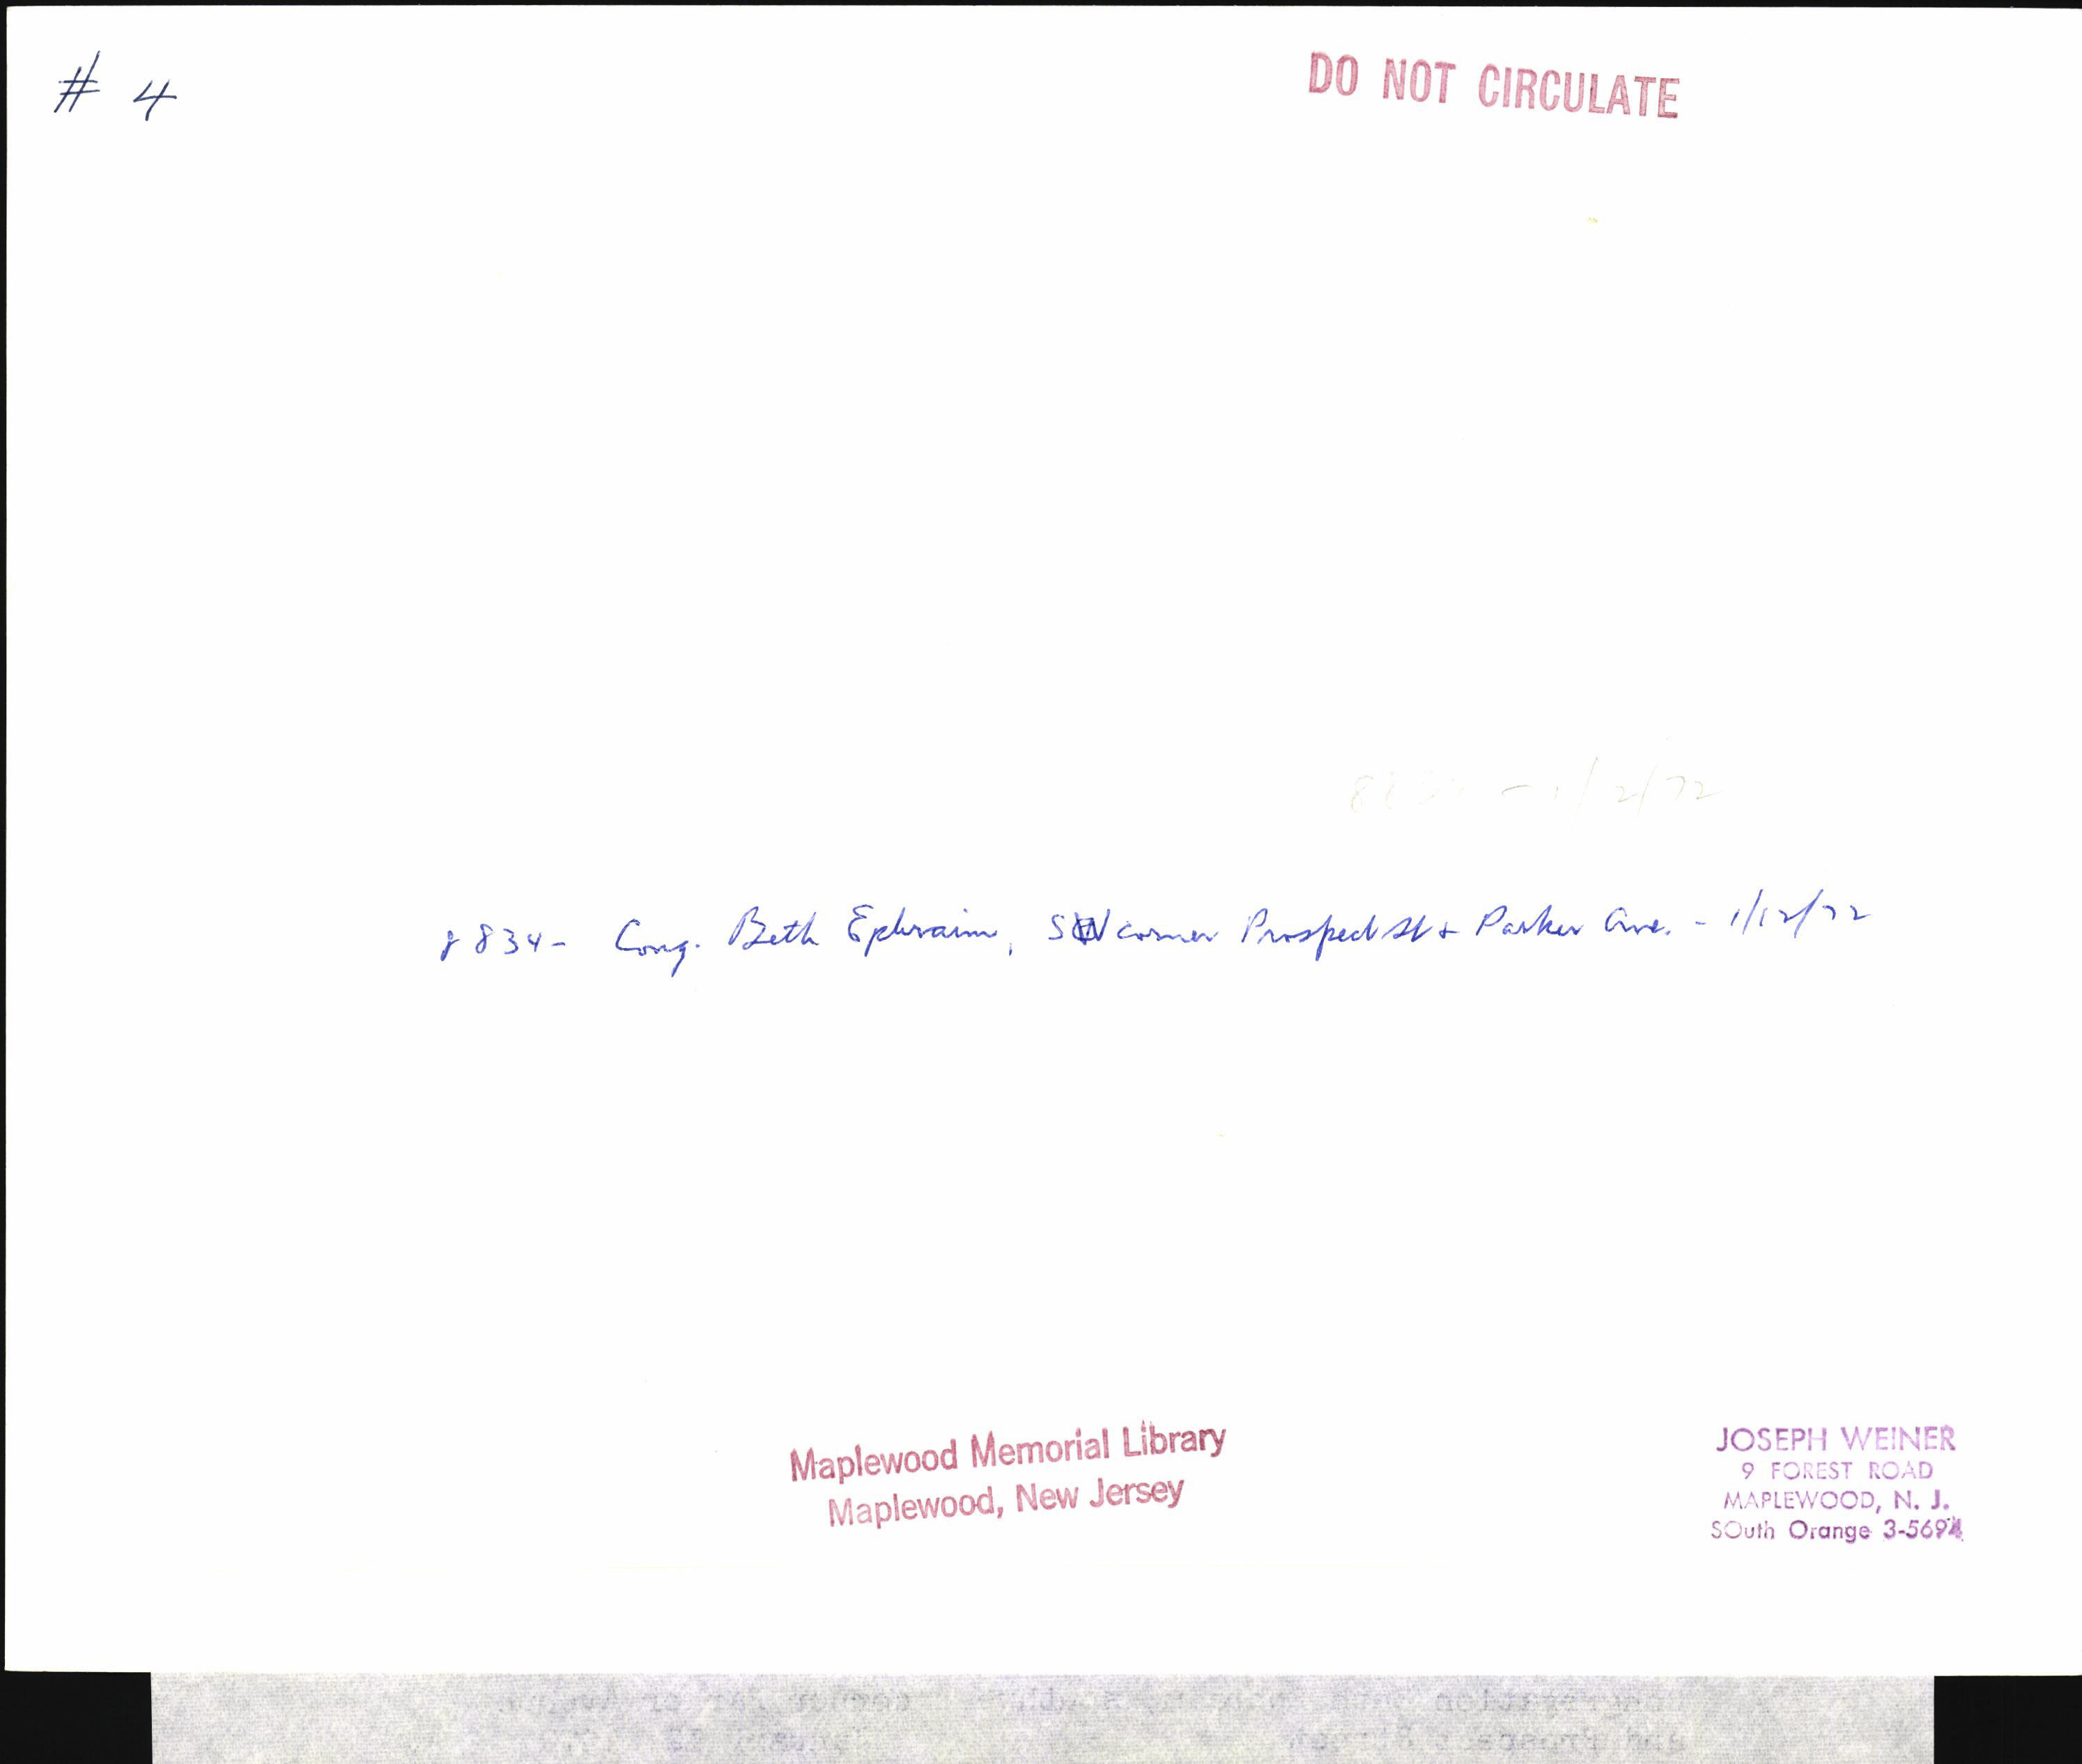 # 4
DO NOT CIRCULATE
8834 - Cong. Beth Ephraim, SW corner Prospect St + Parker Ave. - 1/12/72
Maplewood Memorial Library
Maplewood, New Jersey
JOSEPH WEINER
9 FOREST ROAD
MAPLEWOOD, N. J.
SOuth Orange 3-5694